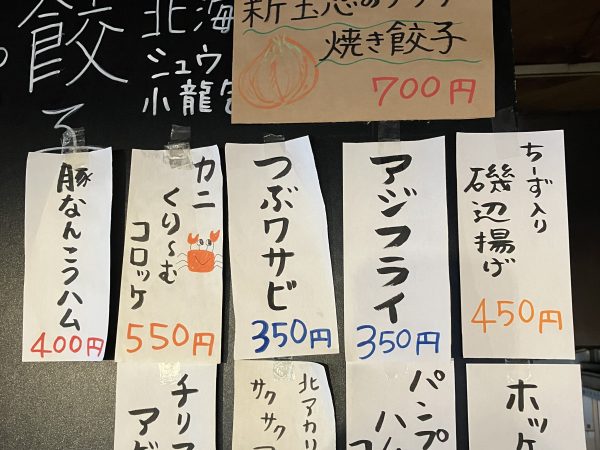 餃
北海
シュウ
小龍包
新玉ねぎの
焼き餃子
700円
豚なんこつハム
400円
カニ
くり〜む
コロッケ
550円
つぶワサビ
350円
アジフライ
350円
ちーず入り
磯辺揚げ
450円
チリ
アゲ
北アカリ
サクサク
パンプ
ハム
コ
ホッケ